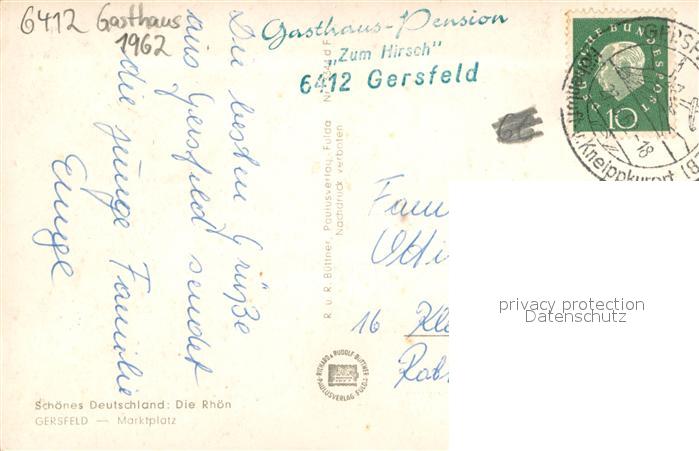 6412 Gasthaus
1962
Gasthaus-Pension
"Zum Hirsch"
6412 Gersfeld
DEUTSCHE BUNDESPOST
10
GERSF
Kneippkurort
18
Die besten Grüße
aus Gersfeld sendet
die junge Familie
R. u. R. Büttner, Paulusverlag, Fulda
Nachdruck verboten
Fam
Otti
16 Kle
Rab
privacy protection
Datenschutz
RICHARD & RUDOLF BÜTTNER
PAULUSVERLAG FULDA
Schönes Deutschland: Die Rhön
GERSFELD — Marktplatz